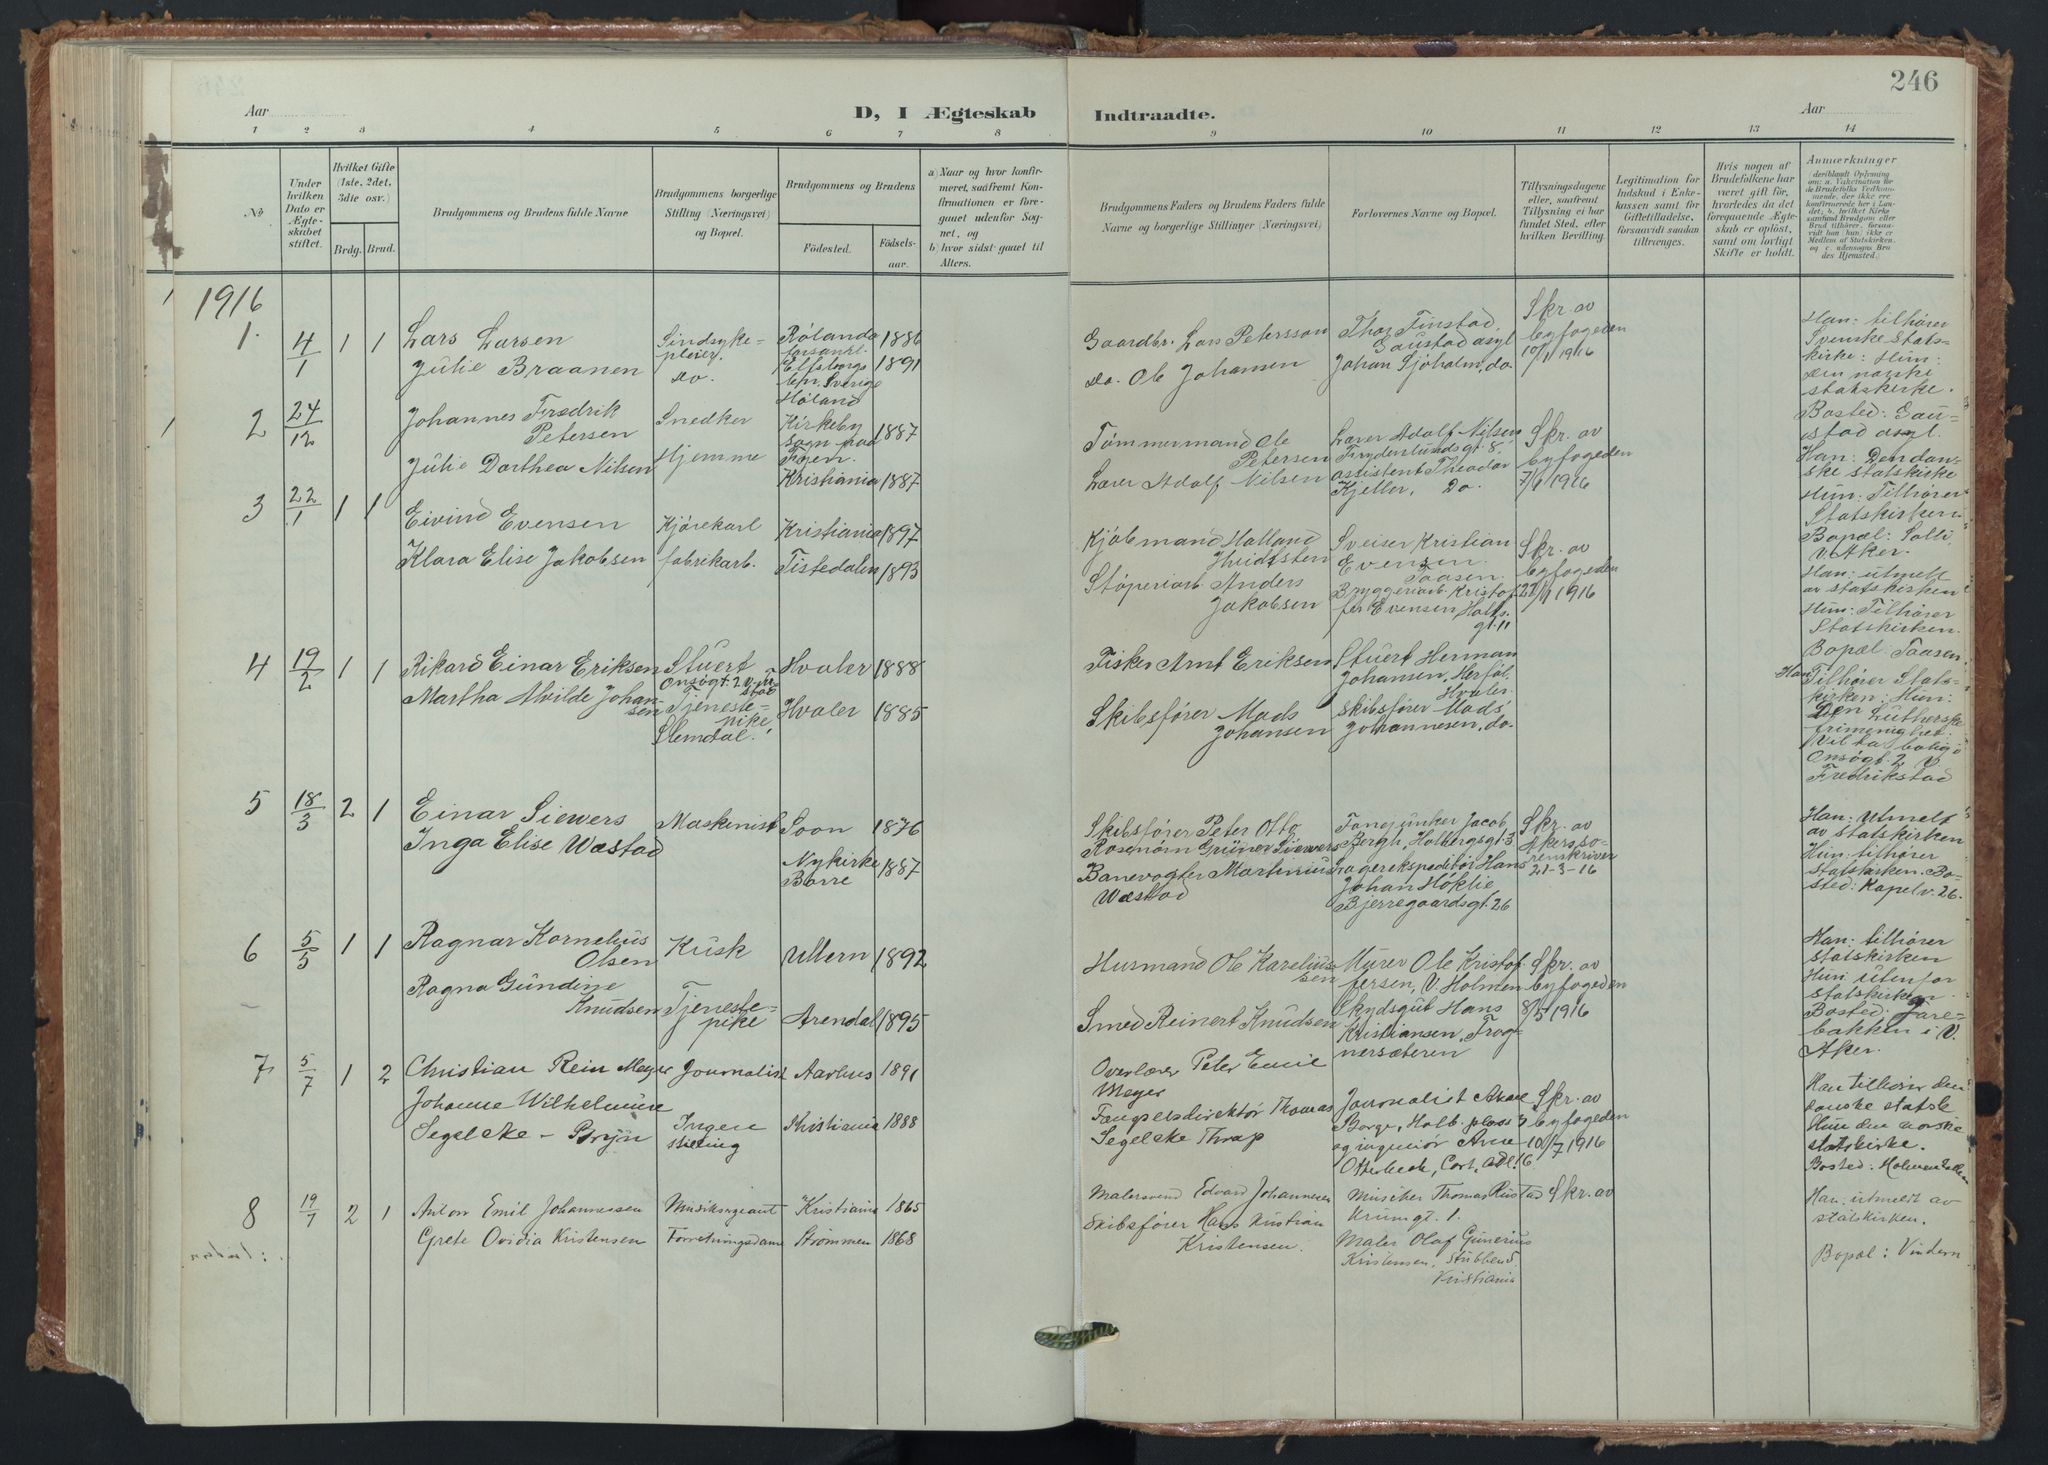 246
Aar
D, I Ægteskab
Indtraadte.
Aar
1 2 3 4 5 6 7 8 9 10 11 12 13 14
№
Under hvilken Dato er Ægteskabet stiftet.
Hvilket Gifte (1ste, 2det, 3die osv.)
Brdg. Brud.
Brudgommens og Brudens fulde Navne
Brudgommens borgerlige Stilling (Næringsvei) og Bopæl.
Brudgommens og Brudens
Födested.
Födselsaar.
a) Naar og hvor konfirmeret, saafremt Konfirmationen er foregaaet udenfor Sognet, og
b) hvor sidst gaaet til Alters.
Brudgommens Faders og Brudens Faders fulde Navne og borgerlige Stillinger (Næringsvei)
Forlovernes Navne og Bopæl.
Tillysningsdagene eller, saafremt Tillysning ei har fundet Sted, efter hvilken Bevilling.
Legitimation for Indskud i Enkekassen samt for Giftetilladelse, forsaavidt saadan tiltrænges.
Hvis nogen af Brudefolkene har været gift för, hvorledes da det foregaaende Ægteskab er oplöst, samt om lovligt Skifte er holdt.
Anmerkninger
1916
1.
4/1
1 1
Lars Larsen
Julie Braanen
Sindsykepleier.
do.
Rölanda
forsaml.
Elfsborgs
len, Sverige
Höland
1886
1891
Gaardbr. Lars Petersson
do. Ole Johansen
Thor Finstad,
Gaustad asyl
Johan Sjöholm, do.
Skr. av
byfogeden
10/1 1916
Han: tilhører
Svenske Stats-
kirke: Hun:
den norske
statskirke.
Bosted: Gau-
stad asyl.
2
24/12
Johannes Fredrik
Petersen
Julie Dorthea Nilsen
Snedker
Hjemme
Kirkeby
sogn paa
Fyen.
Kristiania
1887
1887
Tömmermand Ole
Petersen
Lærer Adolf Nilsen
Lærer Adolf Nilsen,
Frydenlundsgt. 8,
assistent Theodor
Kjeller, Do.
Skr. av
byfogeden
7/1 1916
Han: Den dan-
ske statskirke
Hun: Tilhører
Statskirken.
Bopæl: Solli
V. Aker.
3
22/1
1 1
Eivind Evensen
Klara Elise Jakobsen
Kjörekarl
fabrikarb.
Kristiania
Tistedalen
1897
1893
Kjöbmand Halland
Hvidtsten
Stöperiarb. Anders
Jakobsen
Sveiser Kristian
Evensen
Taasen.
Bryggeriarb. Kristof-
fer Evensen, Holts-
gt. 11
Skr. av
byfogeden
22/1 1916
Han: utmeldt
av statskirken
Hun: Tilhører
Statskirken.
Bopæl: Taasen.
4
19/2
1 1
Rikard Einar Eriksen
Martha Alvilde Johan-
sen
Stuert
Onsögt. 2 v. Fr.
stad
Tjeneste-
pike
Slemdal.
Hvaler
Hvaler
1888
1885
Fisker Arnt Eriksen
Skibsfører Mads
Johansen
Stuert Herman
Johansen, Herföl,
Hvaler.
Skibsfører Mads
Johannesen, do.
Han
Tilhører Stats-
kirken: Hun:
Den Lutherske
frimenighet.
Vil ta bolig i
Onsögt. 2 V.
Fredrikstad
5
18/3
2 1
Einar Siewers
Inga Elise Wæstad
Maskinist
Soon
Nykirke
Borre
1876
1887
Skibsfører Peter Otto
Rosenörn Grüner Siewers
Banevogter Martinius
Wæstad
Fanejunker Jacob
Bergh, Holbergsgt. 3
Lagerekspeditör Hans
Johan Höklie
Bjerregaardsgt. 26
Skr. av
Akers so-
renskriver
21-3-16
Han: Utmeldt
av statskirken
Hun: tilhører
statskirken. Bo-
sted: Kapelv. 26.
6
5/5
1 1
Ragnar Kornelius
Olsen
Ragna Gundine
Knudsen
Kusk
Tjeneste-
pike
Ullern
Arendal
1892
1895
Husmand Ole Karelius-
sen
Smed Reinert Knudsen
Murer Ole Kristof-
fersen, V. Holmen
Skydsgut Hans
Kristiansen, Frog-
nersæteren
Skr. av
byfogeden
8/5 1916
Han: tilhører
statskirken
Hun: utenfor
statskirken
Bosted: Jare-
bakken i V.
Aker.
7
5/7
1 2
Christian Rein Meyer
Johanne Wilhelmine
Segelcke - Bryn
Journalist
Ingen
stilling
Aarhus
Kristiania
1891
1888
Overlærer Peter Emil
Meyer
Fængselsdirektör Thomas
Segelcke Thrap
Journalist Aage
Borge, Holb. plass 3
og ingeniör Arne
Otterbech, Cort. Adl. 16
Skr. av
byfogeden
10/7 1916
Han tilhører den
danske statsk.
Hun den norske
statskirke.
Bosted: Holmenkollen
8
19/7
2 1
Anton Emil Johannessen
Grete Ovidia Kristensen
Musiksergeant
Forretningsdame
Kristiania
Strømmen
1865
1868
Malersvend Edvard Johannesen
Skibsfører Hans Kristian
Kristensen.
Musiker Thomas Rustad
Krumgt. 1.
Maler Olaf Gunerius
Kristensen, Stubben 5
Kristiania
Skr. av
Han: utmeldt av
statskirken.
Bopæl: Vindern